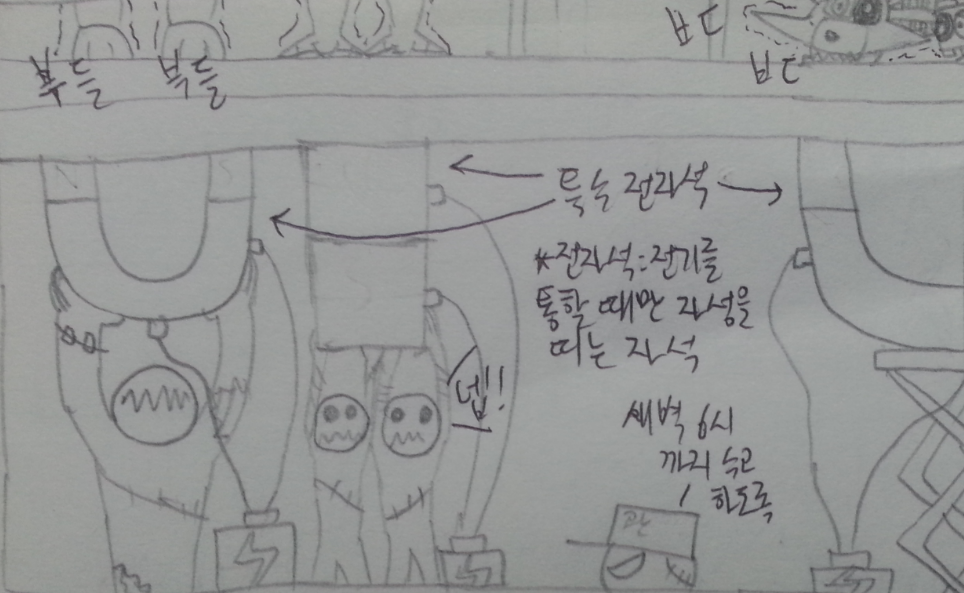 부들 부들
ㅂㄷ
ㅂㄷ
특수 전자석
*전자석:전기를
통할 때만 자성을
띠는 자석
넵!!
새벽 6시
까지 수고
하도록
관